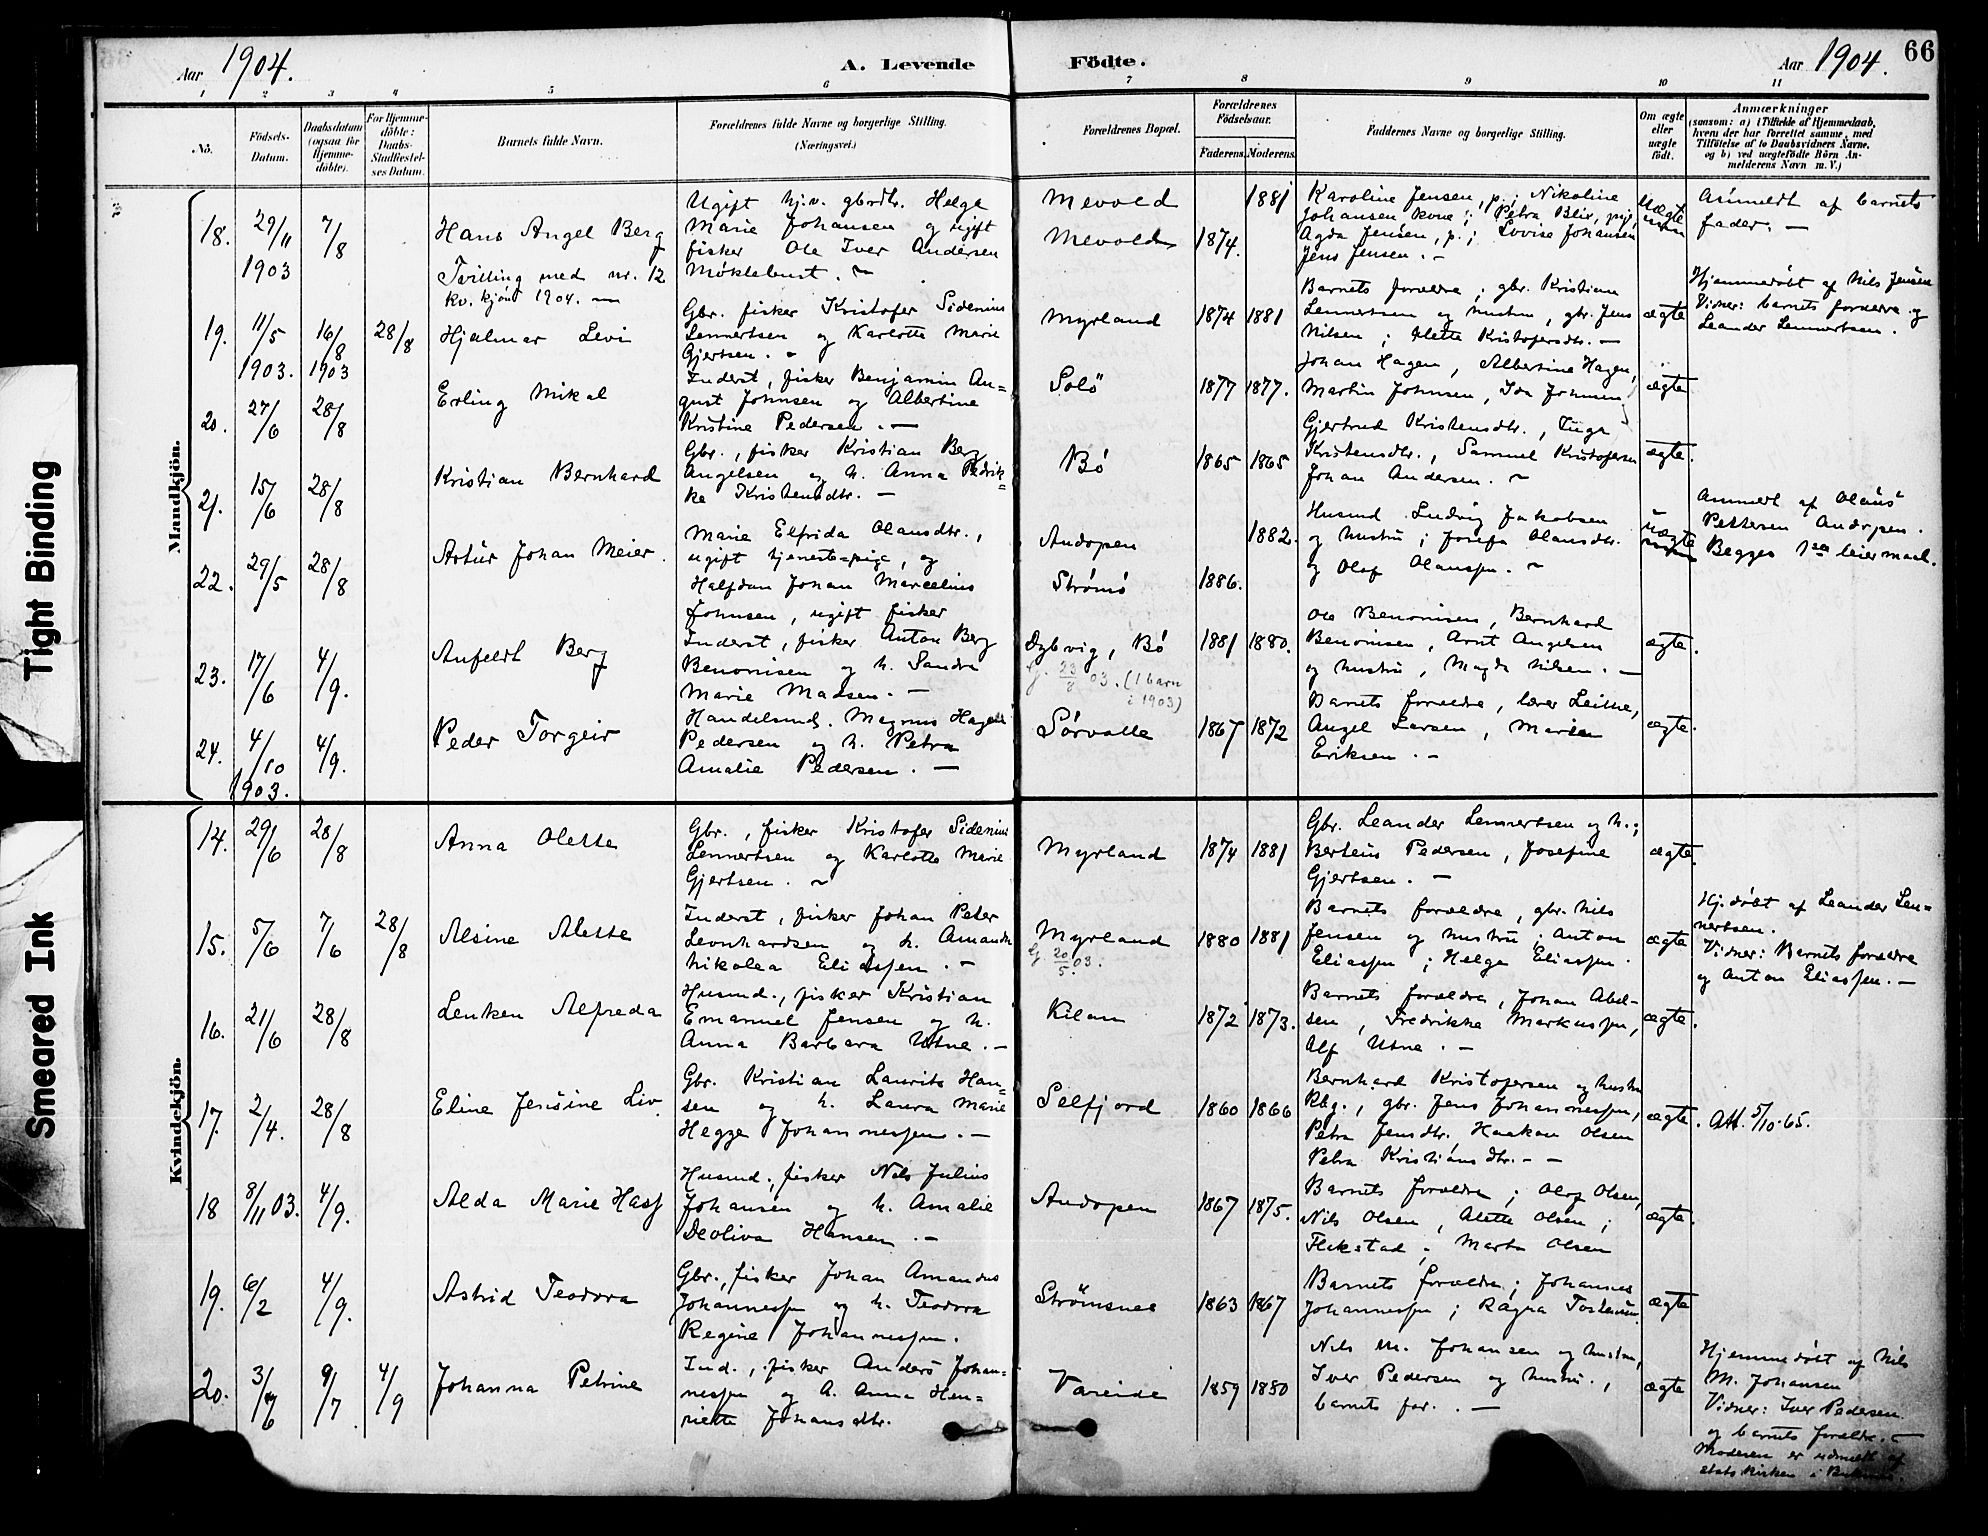 66
Aar 1904.
A. Levende Födte.
Aar 1904.
1 2 3 4 5 6 7 8 9 10 11
No.
Födsels-Datum.
Daabsdatum (ogsaa for Hjemme-döbte).
For Hjemme-döbte: Daabs-Stadfæstel-ses Datum.
Barnets fulde Navn.
Forældrenes fulde Navne og borgerlige Stilling.
(Næringsvei.)
Forældrenes Bopæl.
Forældrenes Födselsaar.
Faderens. Moderens.
Faddernes Navne og borgerlige Stilling.
Om ægte eller uægte födt.
Anmærkninger
(saasom: a) i Tilfælde af Hjemmedaab, hvem der har forrettet samme, med Tilföielse af to Daabsvidners Navne, og b) ved uægtefödte Börn Anmelderens Navn m. V.)
Mandkjön.
18. 29/11 1903 7/8
Hans Angel Berg
Tvilling med nr. 12
kv. kjön 1904. —
Ugift hj.v. gbrdtr. Helga
Marie Johansen og ugift
fisker Ole Iver Andersen
Møklebust. —
Mevold
Mevolden
1874. 1881
Karoline Jensen, p.; Nikoline
Johansen kone; Petra Blix, pige;
Agda Jensen, p.; Lovise Johansen
Jens Jensen. —
Uægte
Anmeldt af barnets
fader. —
19. 11/5 1903. 16/8 1903 28/8
Hjalmar Levi
Gbr. fisker Kristofer Sidenius
Lennertsen og Karlotte Marie
Gjertsen. —
Myrland
1874 1881
Barnets forældre; gbr. Kristian
Lennertsen og hustru, gbr. Jens
Nilsen; Alette Kristofersdtr. —
ægte
Hjemmedöbt af Nils Jensen
Vidner: barnets forældre og
Leander Lennertsen.
20. 27/6 28/8
Erling Mikal
Inderst, fisker Benjamin Au=
gust Johnsen og Albertine
Kristine Pedersen. —
Solö
1877 1877.
Johan Hagen, Albertine Hagen,
Martin Johnsen, Ida Johnsen
ægte
21. 15/6 28/8
Kristian Bernhard
Gbr., fisker Kristian Berg
Angelsen og h. Anna Fedrik=
ke Kristensdtr. —
Bö
1865 1865
Gjertrud Kristensdtr., Inga
Kristensdtr., Samuel Kristofersen
Johan Andersen. —
ægte.
22. 29/5 28/8
Artur Johan Meier.
Marie Elfrida Olausdtr.,
ugift tjenestepige, og
Halfdan Johan Marcelius
Johnsen, ugift fisker
Andopen
Strömö
1886. 1882.
Husmd. Ludvig Jakobsen
og hustru; Josefa Olausdtr.
og Olaf Olaussen. —
uægte
Anmeldt af Olaus
Pettersen Andopen.
Begges 1ste leiermaal.
23. 17/6 4/9.
Anfeldt Berg
Inderst, fisker Anton Berg
Benonisen og h. Sandra
Marie Madsen. —
Dybvig, Bö
G. 23/8 03. (1 barn
i 1903)
1881 1880.
Ole Benonisen, Bernhard
Benonisen, Arnt Angelsen
og hustru, Magda Nilsen. —
ægte.
24. 4/10 1903. 4/9.
Peder Torgeir
Handelsmd. Magnus Hagen
Pedersen og h. Petra
Amalie Pedersen. —
Sörvalle
1867 1872
Barnets forældre, lærer Leithe,
Angel Larsen, Marien
Eriksen. —
ægte.
Kvindekjön.
14. 29/6 28/8
Anna Olette
Gbr., fisker Kristofer Sidenius
Lennertsen og Karlotte Marie
Gjertsen. —
Myrland
1874 1881
Gbr. Leander Lennertsen og h.;
Berteus Pedersen, Josefine
Gjertsen. —
ægte.
15. 5/6 7/6 28/8
Alsine Alette
Inderst, fisker Johan Peter
Leonhardsen og h. Amanda
Nikolea Eliassen. —
Myrland
G 20/5 03.
1880 1881
Barnets forældre, gbr. Nils
Jensen og hustru; Anton
Eliassen; Helga Eliassen.
ægte
Hj.döbt af Leander Len=
nertsen.
Vidner: Barnets forældre
og Anton Eliassen. —
16. 21/6 28/8
Lenken Alfreda
Husmd., fisker Kristian
Emanuel Jensen og h.
Anna Barbara Utne. —
Kilan
1872 1873.
Barnets forældre, Johan Abel-
sen, Fredrikke Markussen,
Alf Utne. —
ægte.
17. 2/4. 28/8
Eline Jensine Liv.
Gbr. Kristian Laurits Han=
sen og h. Laura Marie
Hegge Johannessen. —
Selfjord
1860 1866
Bernhard Kristofersen og hustru
Rbg., gbr. Jens Johannessen,
Petra Jensdtr. Haakon Olsen
Petra Kristiansdtr. —
ægte.
Att. 5/10.65.
18 8/11 03. 4/9.
Alda Marie Hass
Husmd., fisker Nils Julius
Johansen og h. Amalie
Deoliva Hansen. —
Andopen
1867 1875.
Barnets forældre; Olaf Olsen,
Nils Olsen, Alette Olsen;
Flakstad; Marta Olsen
ægte.
19. 6/2 4/9.
Astrid Teodora
Gbr., fisker Johan Amandus
Johannessen og h. Teodora
Regine Johannessen.
Strömsnes
1863 1867
Barnets forældre; Johannes
Johannessen; Ragna Torstensen
ægte
20. 3/6 9/7 4/9
Johanna Petrine
Ind., fisker Anders Johan=
nessen og h. Anna Hen=
riette Johansdtr.
Vareide
1859 1880
Nils M. Johansen og hustru,
Iver Pedersen og hustru.,
barnets far. —
ægte
Hjemmedöbt af Nils
M. Johansen
Vidner: Iver Pedersen
og barnets forældre. —
Moderen er udmeldt af
statskirken i Buksnes.
Tight Binding
Smeared Ink